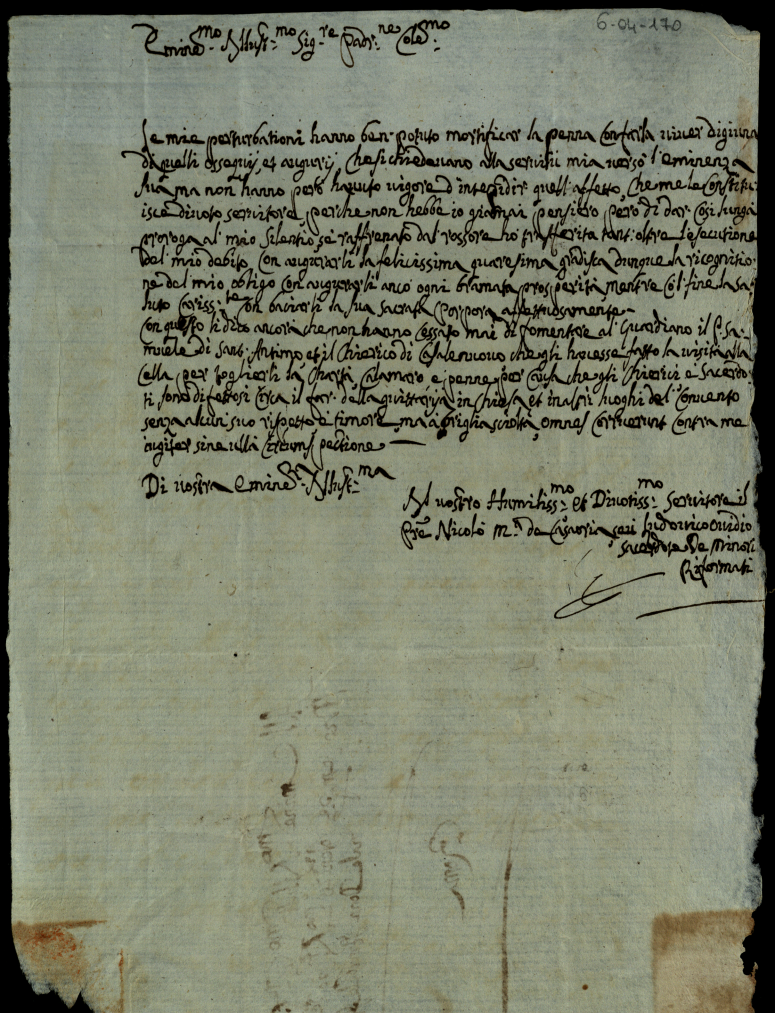 6-04-170
Emine.mo Illust.mo Sig.re Padr.ne Cole.mo
Se mie perturbationi hanno ben potuto mortificar la penna con farla viver digiuna
di quelli ossequij, et augurij, che si chiedevano alla servitù mia verso l'eminenza
sua, ma non hanno però havuto vigore d'intepidir quell'affetto, che me le constitu
isce divoto servitore, perche non hebbe io giamai pensiero però di dar così lunga
proroga al mio silentio, se raffrenato dal rossore ho trasferita tant'oltre l'esecutione
del mio debito, con augurarli la felicissima quaresima, gradisca dunque la ricognitio
ne del mio obligo con augurarli anco ogni bramata prosperità, mentre col fine la sa
luto cariss.te con baciarli la sua sacrata porpora affettuosamente.
Con questo li dico ancora che non hanno cessato mai di fomentare al Guardiano il P. Sa
muele di Sant'Antimo, et il Chierico di Casalenuovo che gli havesse fatto la visita alla
cella per toglierli la charta, calamaro e penne, per causa che gli Chierici e Sacerdo
ti sono difettosi circa il far della guittarra in chiesa et in altri luoghi del Convento
senza alcun suo rispetto e timore, ma à briglia sciolta, omnes corruerunt contra me
iugiter sine ulla circumspectione
Di vostra Emine.za Illust.ma
Il vostro Humiliss.mo et Divotiss.mo servitore il
P.re Nicolò M.a de Casoria, Ludovico Ovidio
sacerdote de Minori
Riformati